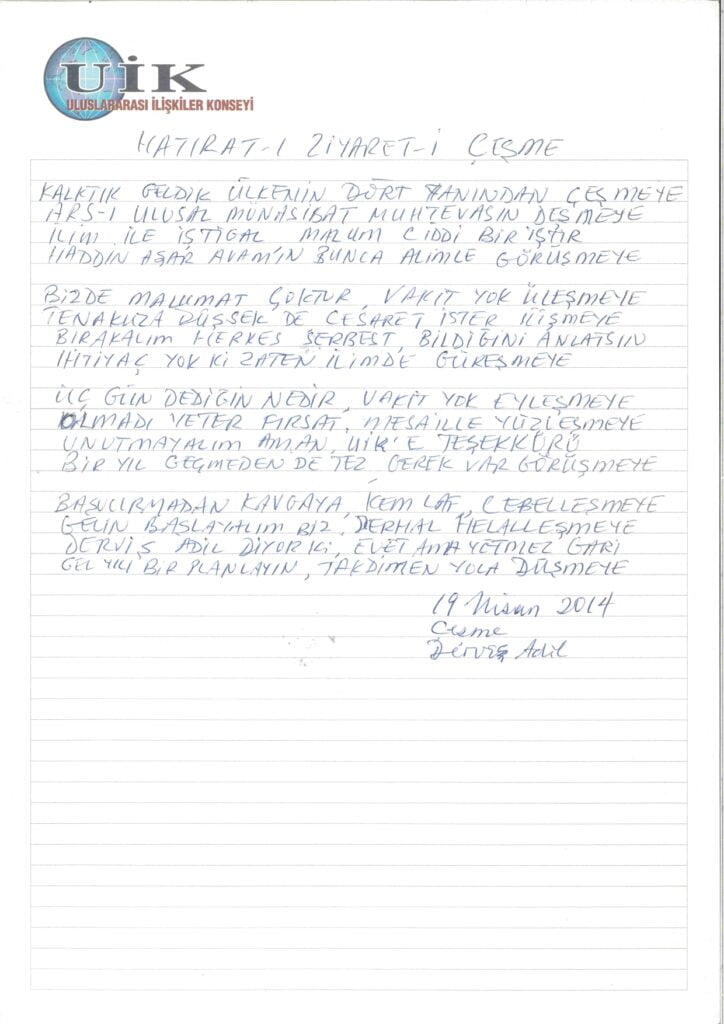 UİK
ULUSLARARASI İLİŞKİLER KONSEYİ
HATIRAT-I ZİYARET-İ ÇEŞME
KALKTIK GELDİK ÜLKENİN DÖRT YANINDAN ÇEŞMEYE
ARS-I ULUSAL MÜNASİBAT MUHTEVASIN DEŞMEYE
İLİM İLE İŞTİGAL MALUM CİDDİ BİR İŞTİR
HADDİN AŞAR AVAM'IN BUNCA ALİMLE GÖRÜŞMEYE
BİZDE MALUMAT ÇOKTUR, VAKİT YOK ÜLEŞMEYE
TENAKUZA DÜŞSEK DE CESARET İSTER İLİŞMEYE
BIRAKALIM HERKES SERBEST, BİLDİĞİNİ ANLATSIN
İHTİYAÇ YOK Kİ ZATEN İLİMDE GÜREŞMEYE
ÜÇ GÜN DEDİĞİN NEDİR, VAKİT YOK EYLEŞMEYE
OLMADI YETER FIRSAT, MESAİLLE YÜZLEŞMEYE
UNUTMAYALIM AMAN, UİK'E TEŞEKKÜRÜ
BİR YIL GEÇMEDEN DE TEZ GEREK VAR GÖRÜŞMEYE
BAŞVURMADAN KAVGAYA, KEM LAF, CEBELLEŞMEYE
GELİN BAŞLAYALIM BİZ, DERHAL HELALLEŞMEYE
DERVİŞ ADİL DİYOR Kİ, EVET AMA YETMEZ GARİ
GEL YILI BİR PLANLAYIN, TAKDİMEN YOLA DÜŞMEYE
19 Nisan 2014
Çeşme
Derviş Adil